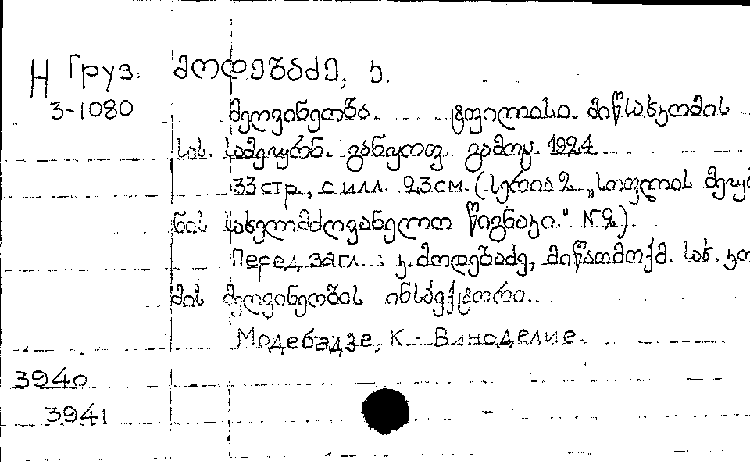 Н Груз. მოდებაძე, კ.
3-1080 მეღვინეობა. ტფილისი. მიწსახკომის
სის. სამეურნ. განყოფ. გამოც. 1924
33 стр., с илл. 23 см. (სერია 2 „სოფლის მეურ
ნის სახელმძღვანელო წიგნაკი." № 2).
Перед загл.: კ. მოდებაძე, მიწათმოქმ. სახ. კო
მის მეღვინეობის ინსპექტორი.
Модебадзе, К. - Виноделие.
3940
3941